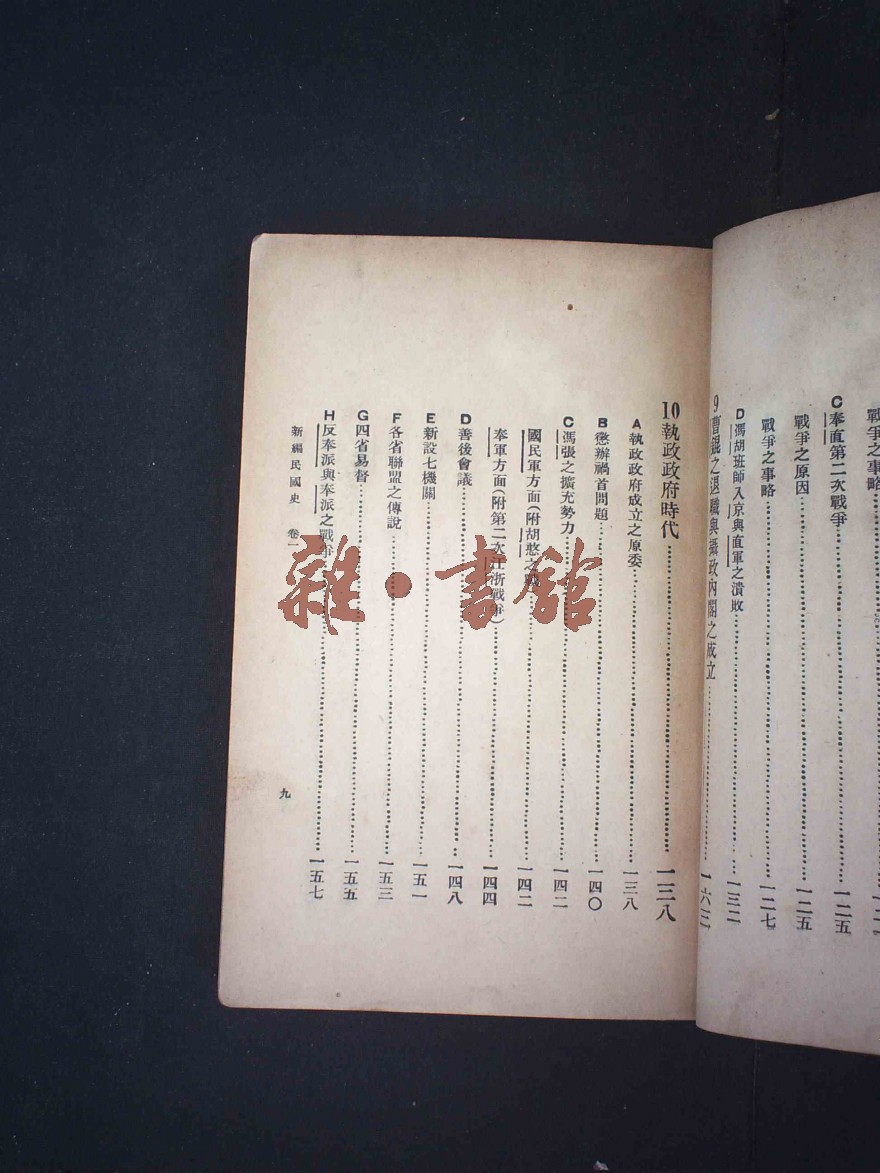 戰爭之事略
C奉直第二次戰爭……一二五
戰爭之原因……一二五
戰爭之事略……一二七
D馮胡班師入京與直軍之潰敗……一三二
9曹錕之退職與攝政內閣之成立……一六三
10執政政府時代……一三八
A執政政府成立之原委……一三八
B懲辦禍首問題……一四〇
C馮張之擴充勢力……一四二
國民軍方面(附胡憨之戰)……一四二
奉軍方面(附第二次江浙戰爭)……一四四
D善後會議……一四八
E新設七機關……一五一
F各省聯盟之傳說……一五三
G四省易督……一五五
H反奉派與奉派之戰爭……一五七
新編民國史 卷一
九
雜·書館